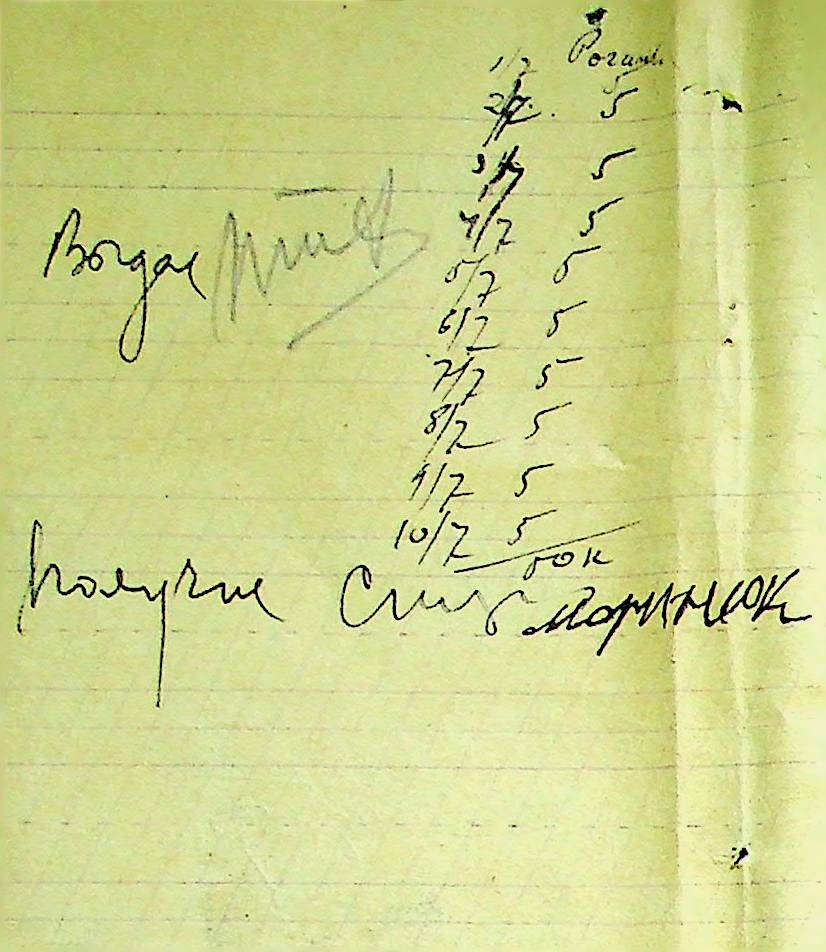 1/7
2/7 5
3/7 5
4/7 5
Выдал
5/7 5
6/7 5
7/7 5
8/7 5
9/7 5
10/7 5
50 к
Получил Маринюк